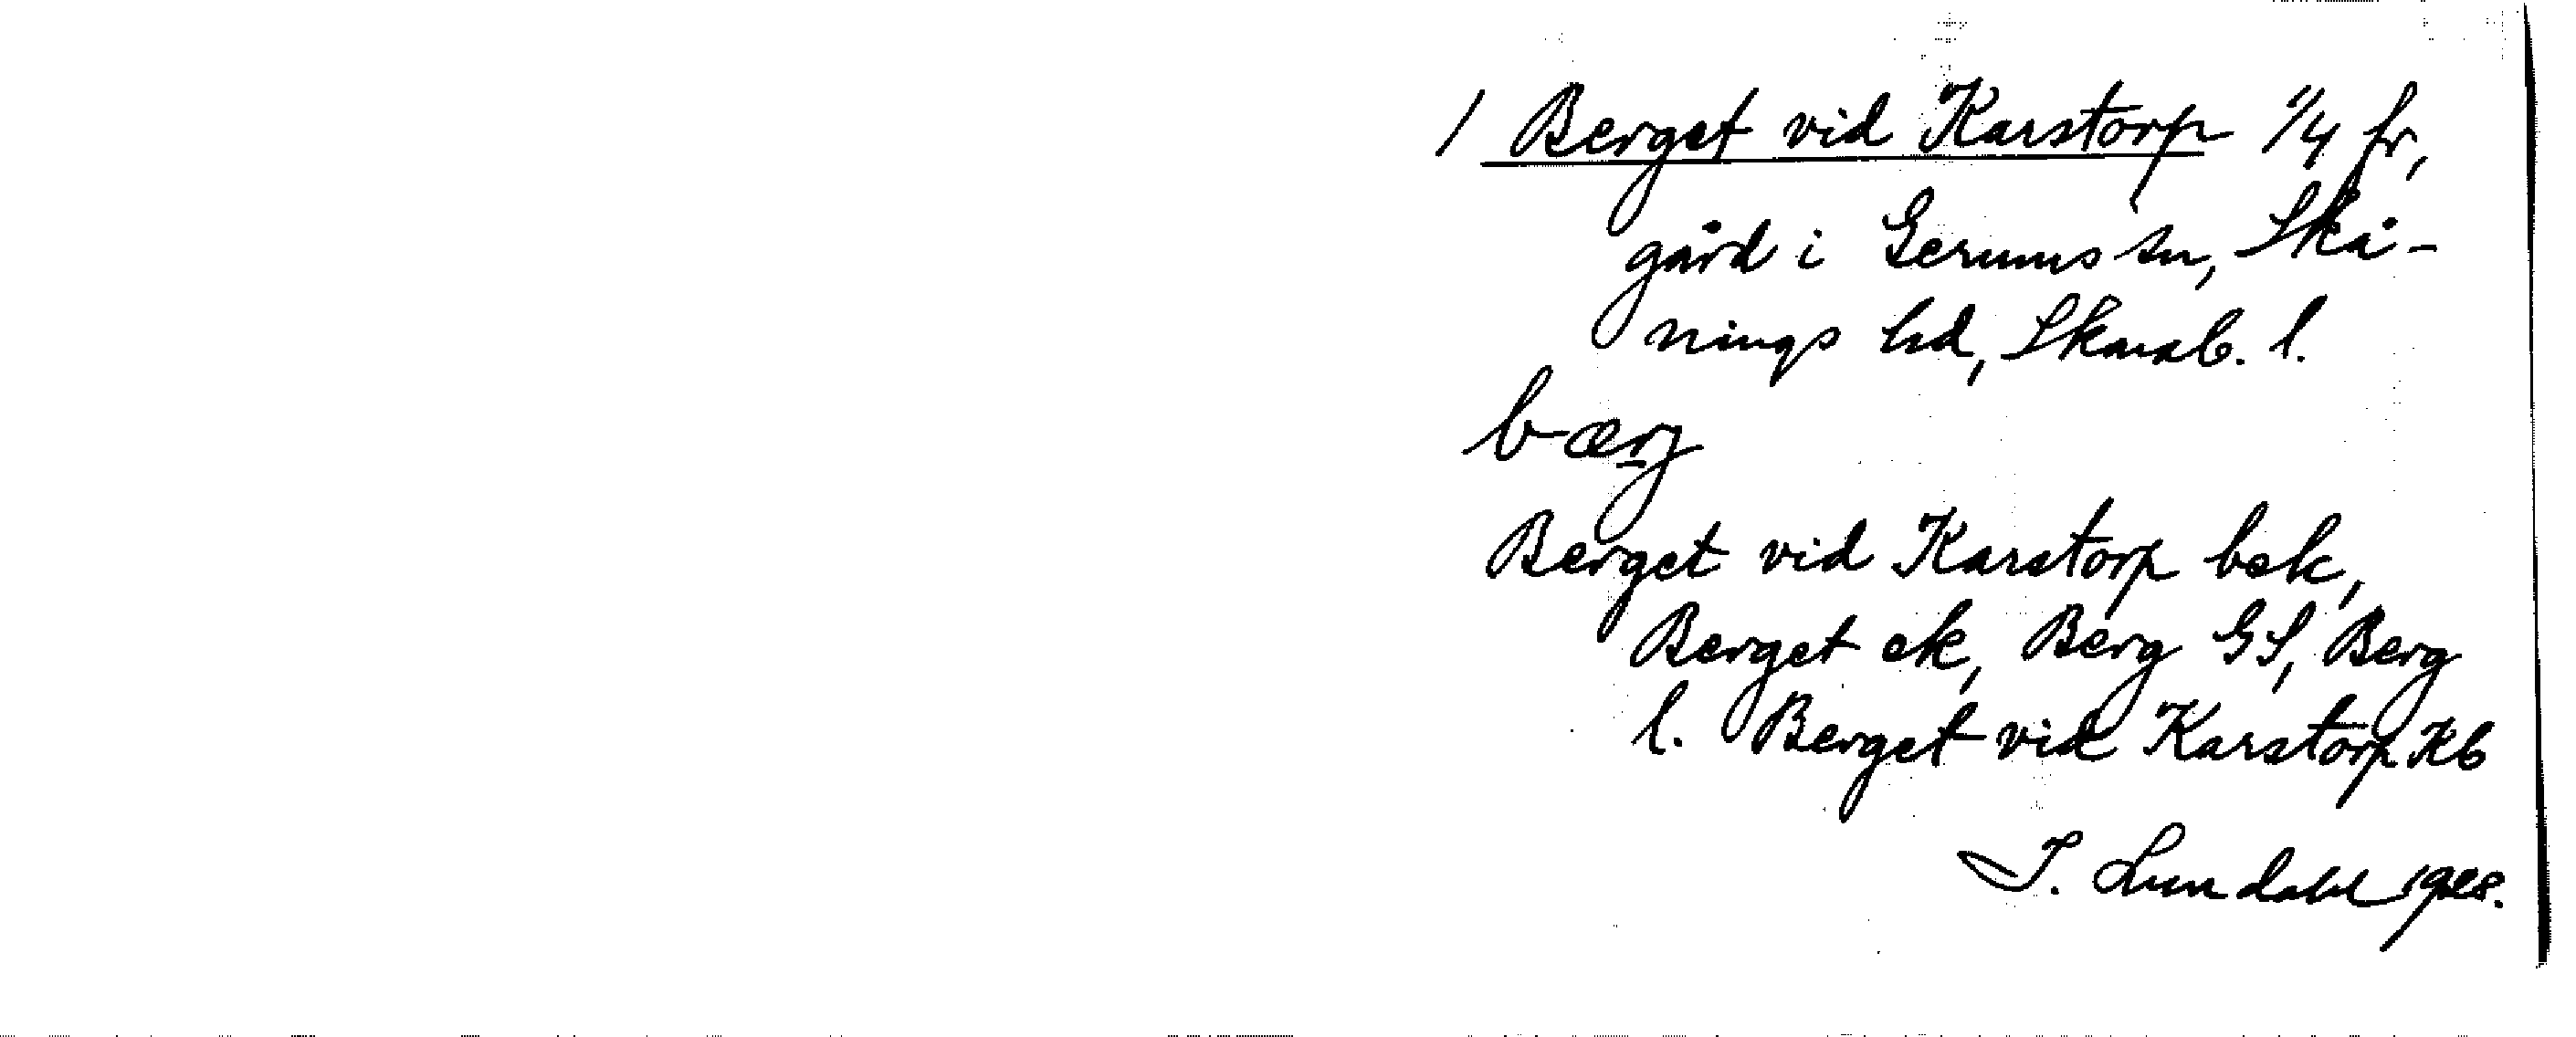 / Berget vid Karstorp 1/4 fr,
gård i Gerums sn, Skå-
nings hd, Skarab. l.
bærj
Berget vid Karstorp bek,
Berget ek, Berg GS, Berg
l. Berget vid Karstorp Kb
I. Lundahl 1928.